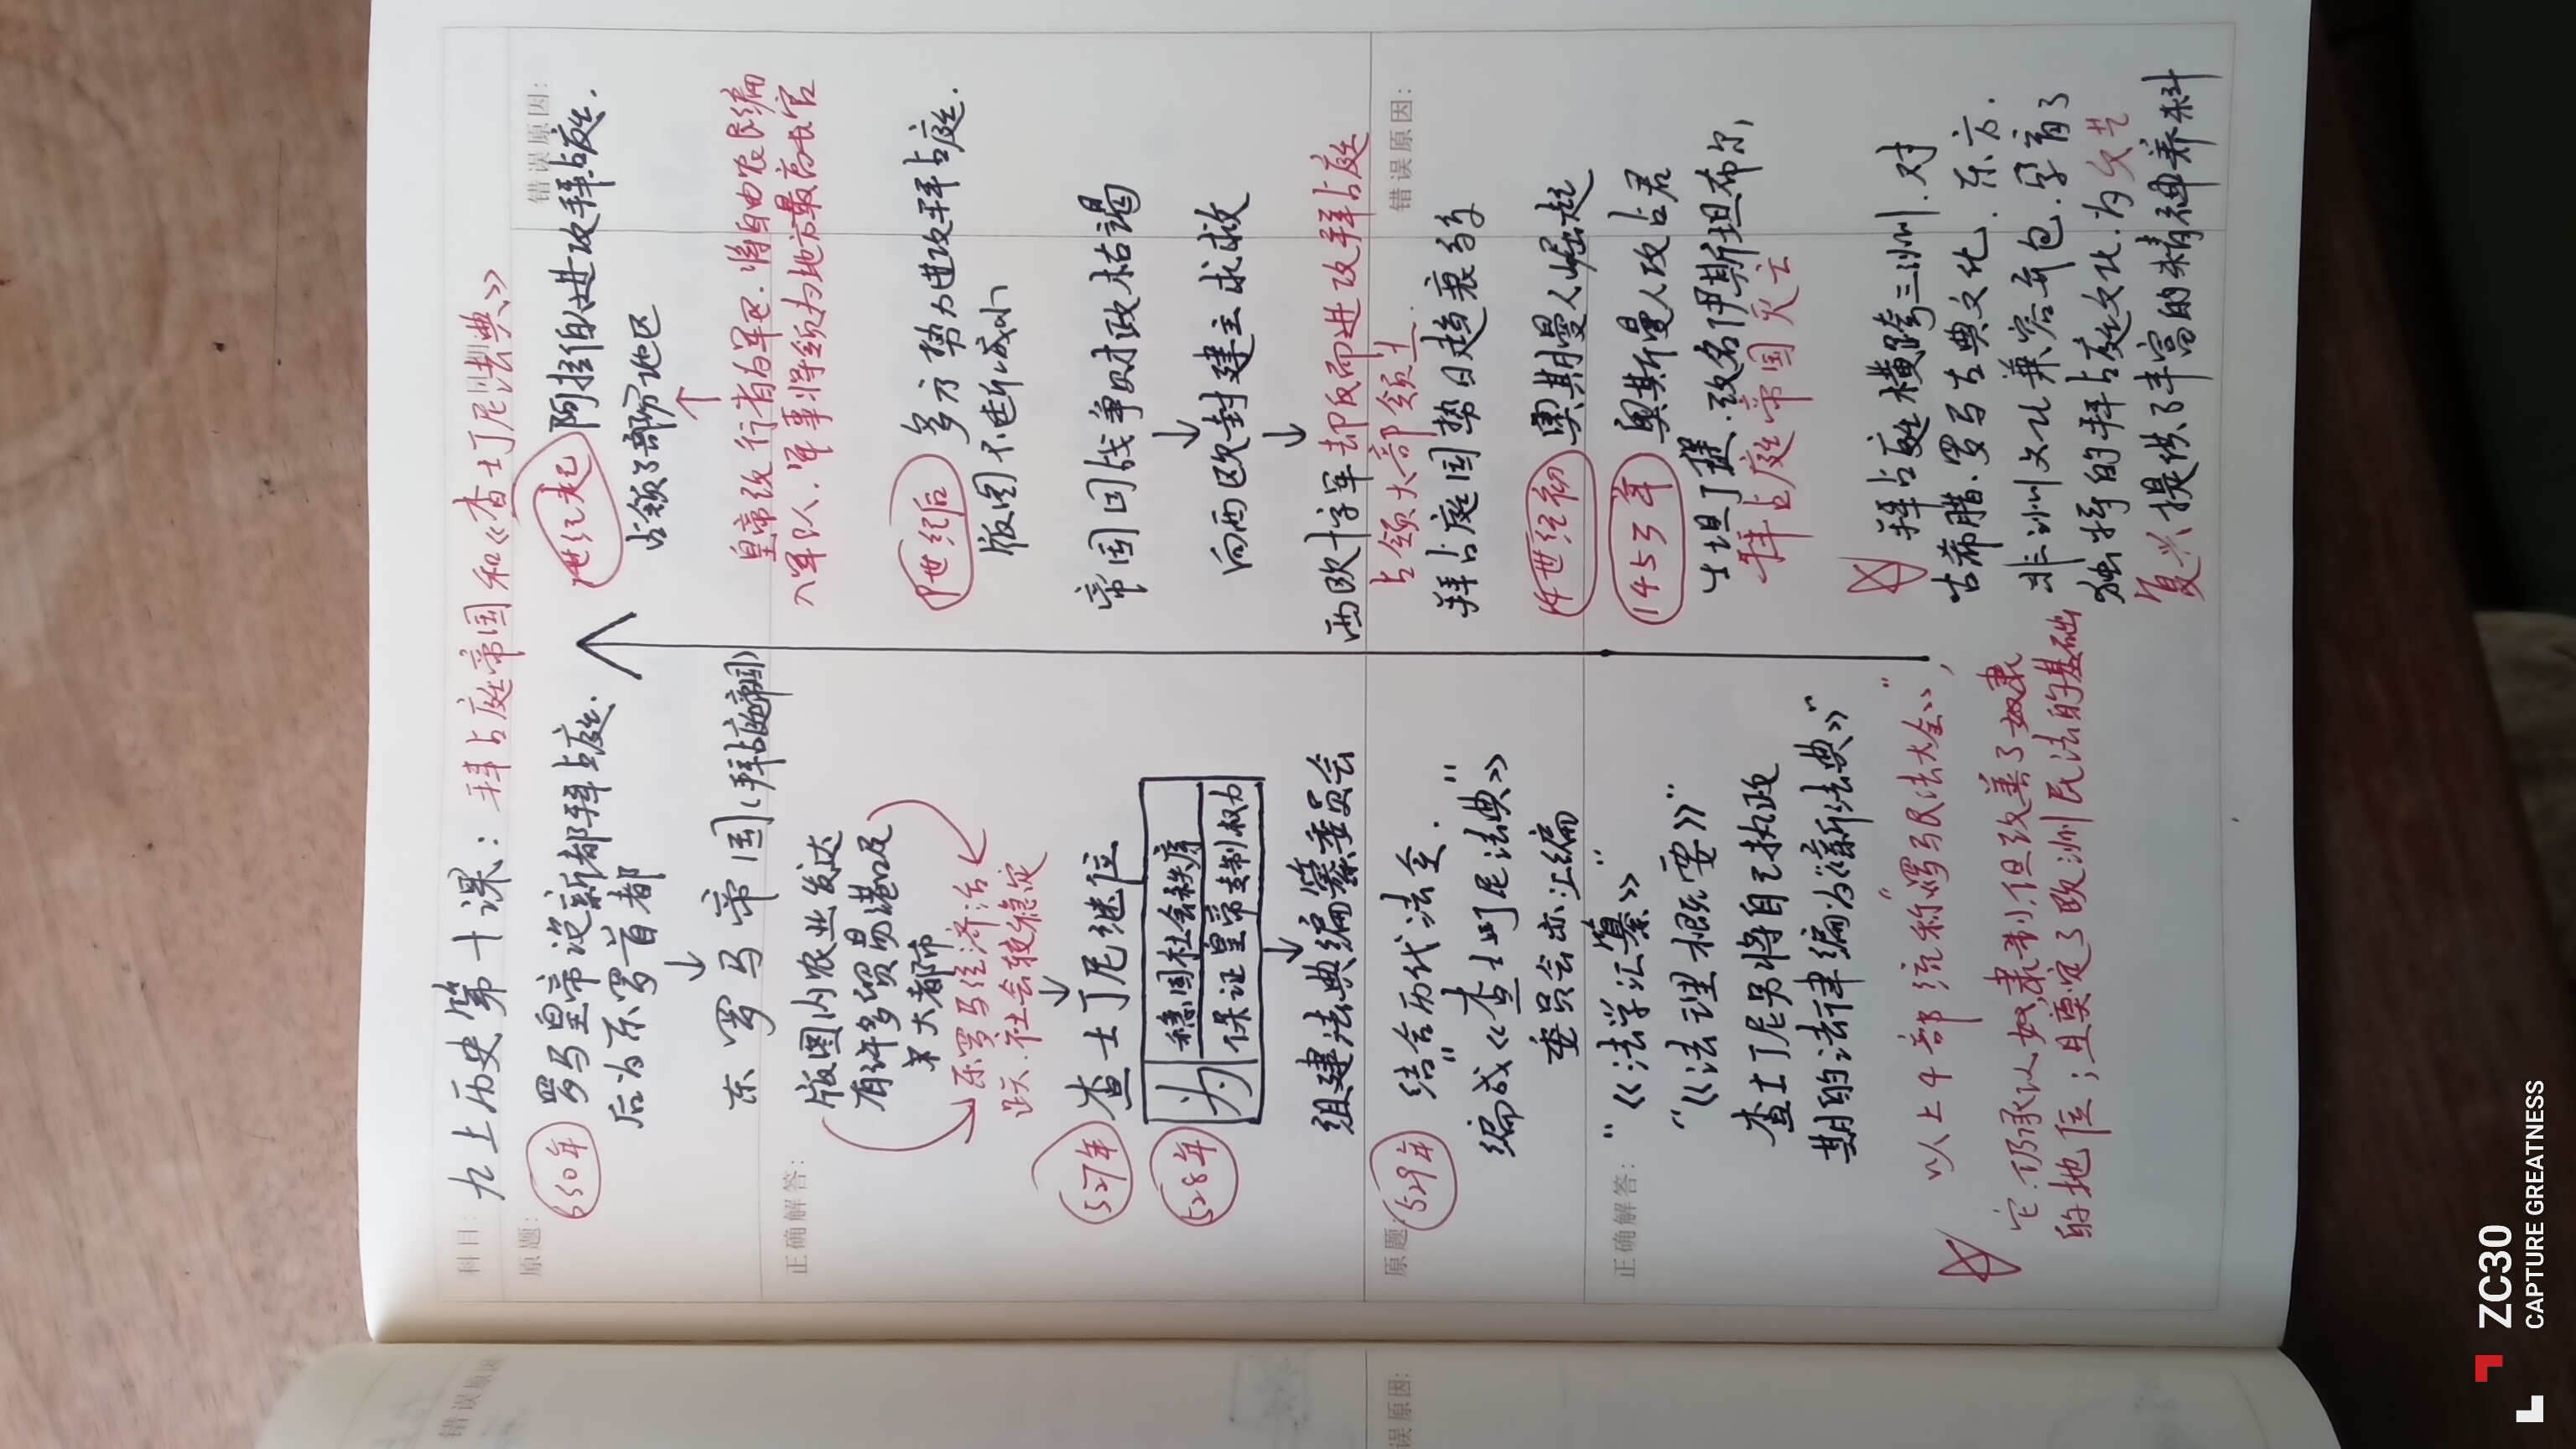 科目：九上历史第十课：拜占庭帝国和《查士丁尼法典》
原题：
330年 罗马皇帝设新都拜占庭.
后为东罗首都
↓
东罗马帝国(拜占庭帝国)
正确解答：
版图内农业发达
有许多贸易港口及
大都市
东罗马经济活
跃.社会较稳定
↓
527年 查士丁尼继位
528年 为 稳固社会秩序
保证皇帝专制权力
↓
组建法典编纂委员会
原题：
529年 结合历代法令.
编成"《查士丁尼法典》"
委员会亦汇编
"《法学汇纂》"
正确解答：
"《法理概要》"
查士丁尼另将自己执政
期的法律编为"《新法典》"
以上4部流称"《罗马民法大全》",
☆ 它.仍承认奴隶制.但改善了奴隶
的地位；且奠定了欧洲民法的基础
错误原因：
7世纪起 阿拉伯进攻拜占庭.
占领了部分地区
↑
皇帝改行省为军区.将自由农民编
入军队.军事将领为地方最高长官
9世纪后 多方势力进攻拜占庭.
版图不断减小
帝国因战争财政枯竭
↓
向西欧封建主求救
↓
西欧十字军却反而进攻拜占庭
占领大部领土.
错误原因：
拜占庭国势日趋衰弱
14世纪初 奥斯曼人崛起
1453年 奥斯曼人攻占君
士坦丁堡.改名伊斯坦布尔,
拜占庭帝国灭亡
☆ 拜占庭横跨三洲.对
古希腊.罗马古典文化.东方.
非洲文化兼容并包.孕育了
独特的拜占庭文化.为文艺
复兴提供了丰富的精神养料
错误原因
误原因：
ZC30
CAPTURE GREATNESS